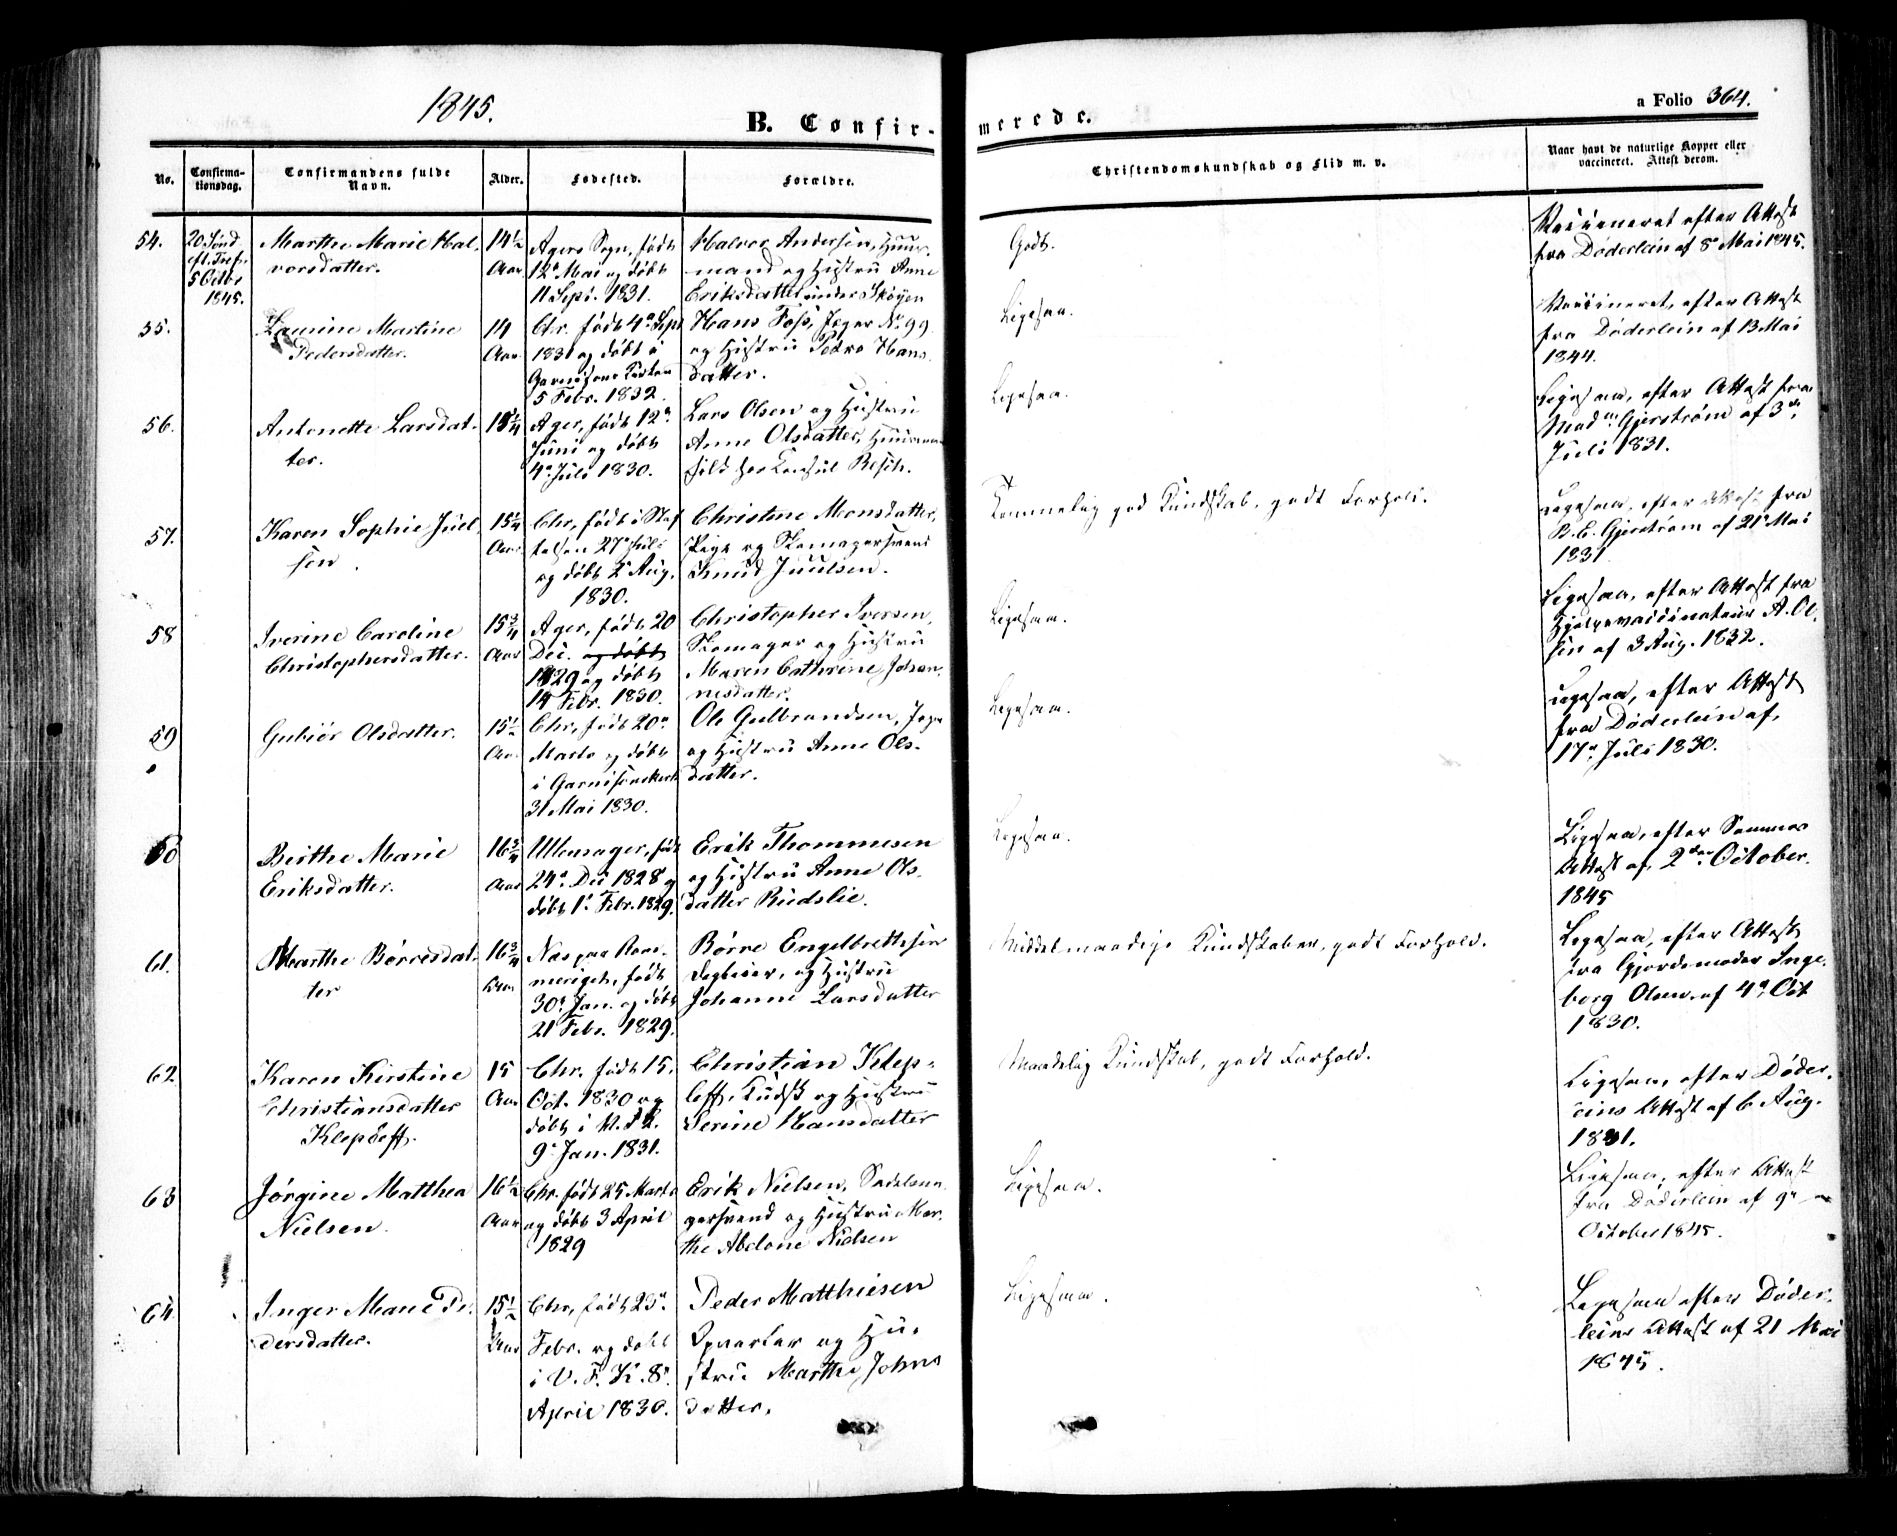 1845.
B. Confir-
merede.
a Folio 364.
No.
Confirma-
tionsdag.
Confirmandens fulde
Navn.
Alder.
Fødested.
Forældre.
Christendomskundskab og Flid m. v.
Naar havt de naturlige Kopper eller
vaccineret. Attest derom.
54.
20 Sønd.
eft. Tref.
5 Octbr
1845.
Marthe Marie Hal-
vorsdatter.
14 1/2
Aar
Agers Sogn, født
12te Mai og døbt
11 Sept. 1831.
Halvor Andersen, Huus-
mand og Hustru Anne
Eriksdatter under Skøyen
Godt.
Vaccineret efter Attest
fra Døderlein af 8de Mai 1845.
55.
Laurine Martine
Pedersdatter.
14
Aar
Chr. født 4de Sept
1831 og døbt i
Garnisons Kirken
5 Febr. 1832.
Hans Foss, Jæger No. 99
og Hustru Petra Hans
datter.
Ligesaa.
Vaccineret, efter Attest
fra Døderlein af 13 Mai
1844.
56.
Antonette Larsdat-
ter.
15 1/4
Ager, født 12te
Juni og døbt
4de Juli 1830.
Lars Olsen og Hustru
Anne Olsdatter, Huusmands
Ligesaa.
Ligesaa, efter Attest fra
Mad. Gjerstrøm af 3de
Juli 1831.
57.
Karen Sophie Juel-
sen.
15 1/4
Aar
Chr, født i Stif
telsen 27de Juli
og døbt 2de Aug.
1830.
Christine Monsdatter,
Pige og Skomagersvend
Knud Juulsen.
Temmelig god Kundskab, godt Forhold.
Ligesaa, efter Attest fra
B. E. Gjerstrøm af 21de Mai
1831
58
Iverine Caroline
Christophersdatter.
15 3/4
Aar
Ager, født 20
Dec. og døbt
1829 og døbt
14 Febr. 1830.
Christopher Iversen,
Skomager og Hustru
Maren Cathrine Johan-
nesdatter.
Ligesaa.
Ligesaa, efter Attest fra
Hjelpevaccinateur A. Ol-
sen af 3 Aug. 1832.
59
Gubiør Olsdatter.
15 1/2
Aar
Chr, født 20de
Marts og døbt
i Garnisonskirk
31 Mai 1830.
Ole Gulbrandsen,
og Hustru Anne Ols-
datter.
Ligesaa.
Ligesaa, efter Attest
fra Døderlein af,
17de Juli 1830.
60
Berthe Marie
Eriksdatter.
16 3/4
Aar
Ullensager, født
24de Dec 1828 og
døbt 1ste Febr. 1829.
Erik Thommesen
og Hustru Anne Ols-
datter Rudslie.
Ligesaa.
Ligesaa, efter Sammes
Attest af, 2den October.
1845
61.
Marthe Børresdat-
ter
16 3/4
Aar
Næs paa Rome-
meriget, født
30te Jan. og døbt
21 Febr. 1829.
Børre Engelbrethsen
og Hustru
Johanne Larsdatter
Middelmaadige Kundskaber, godt Forhold.
Ligesaa, efter Attest
fra Gjordemoder Inge-
borg Olsen af 4de Oct
1830.
62
Karen Kirstine
Christiansdatter
Klepzeff.
15
Aar
Chr. født 15.
Oct. 1830 og
døbt i V. F. K.
9de Jan. 1831.
Christian Klep-
zeff, Kudsk og Hustru
Serine Hansdatter
Maadelig Kundskab, godt Forhold.
Ligesaa, efter Døder-
leins Attest af 6 Aug.
1831.
63
Jørgine Matthea
Nielsen.
16 1/2
Aar
Chr. født 25 Marts
og døbt 3 April
1829
Erik Nielsen, Sadelma-
gersvend og Hustru Mar-
the Abelone Nielsen
Ligesaa.
Ligesaa, efter Attest
fra Døderlein af
October 1845.
64
Inger Marie Pe-
dersdatter.
15 1/2
Aar
Chr, født 23de
Febr. og døbt
i V. F. K. 8de
April 1830.
Peder Matthiesen
Opvarter og Hu-
stru Marthe Johns
datter.
Ligesaa.
Ligesaa efter Døder-
leins Attest af 21 Mai
1845.